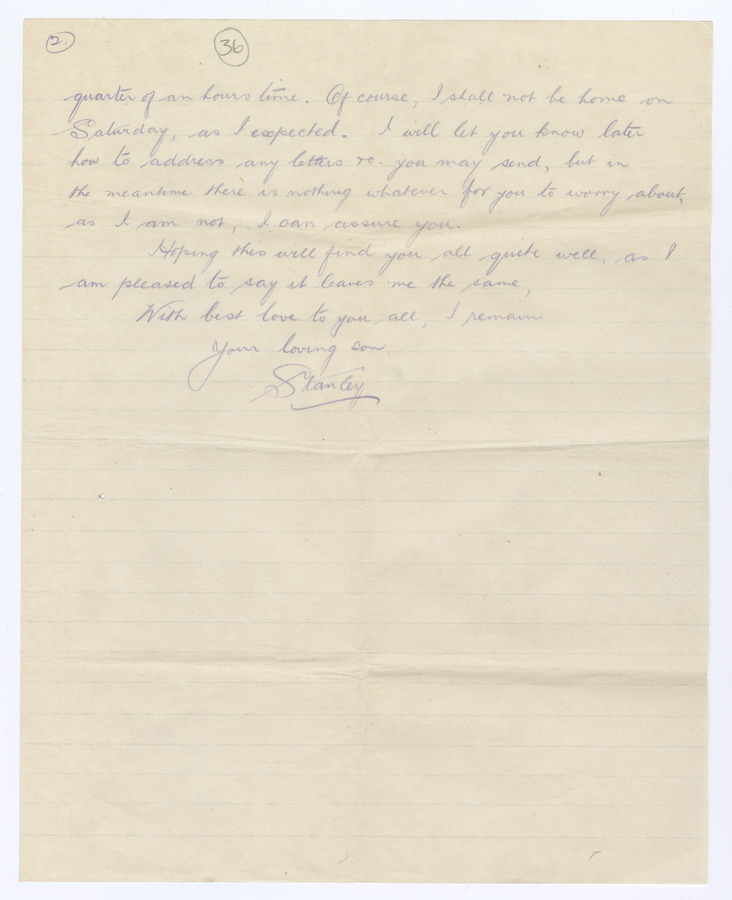 2.
36
quarter of an hours time. Of course, I shall not be home on
Saturday, as I expected. I will let you know later
how to address any letters &c. you may send, but in
the meantime there is nothing whatever for you to worry about,
as I am not, I can assure you.
Hoping this will find you all quite well, as I
am pleased to say it leaves me the same,
With best love to you all, I remain
Your loving son,
Stanley